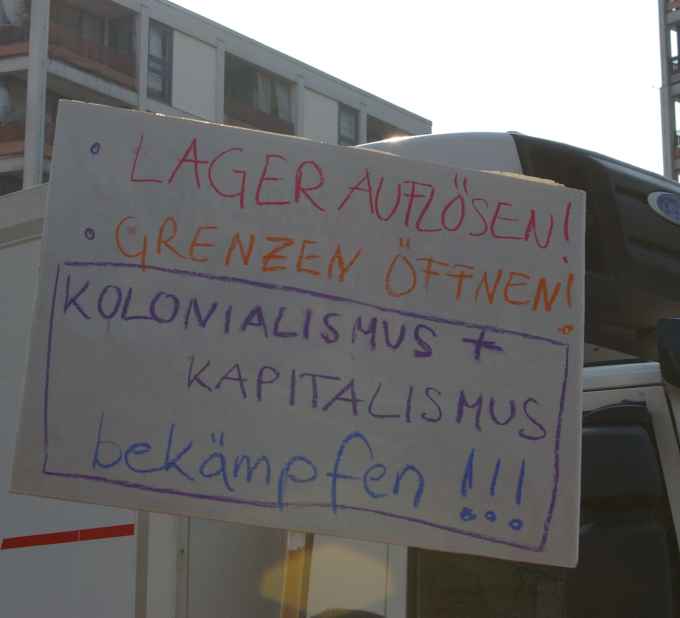 • LAGER AUFLÖSEN!
• GRENZEN ÖFFNEN!
KOLONIALISMUS +
KAPITALISMUS
bekämpfen !!!